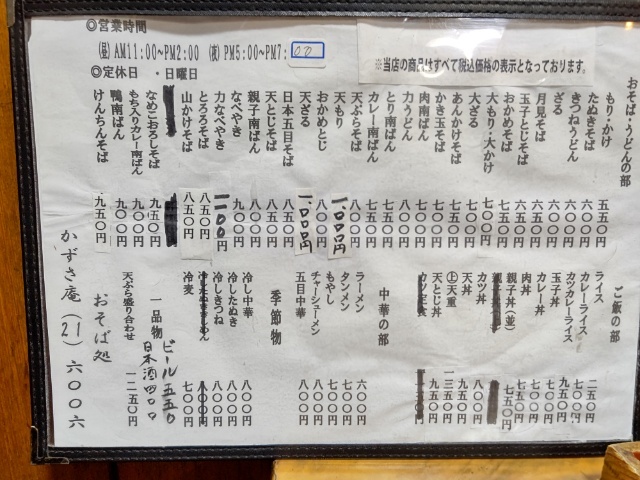 ◎営業時間
(昼) AM11:00~PM2:00 (夜) PM5:00~PM7:00
◎定休日 ・日曜日
※当店の商品はすべて税込価格の表示となっております。
おそば・うどんの部
もり・かけ 五五〇円
たぬきそば 六〇〇円
きつねうどん 六〇〇円
ざる 六〇〇円
月見そば 六五〇円
玉子とじそば 六五〇円
おかめそば 七五〇円
大もり・大かけ 七〇〇円
大ざる 七五〇円
あんかけそば 七五〇円
かき玉そば 七〇〇円
肉南ばん
力うどん 八〇〇円
とり南ばん 七五〇円
カレー南ばん 七五〇円
天ぷらそば 八〇〇円
天もり 1,000円
おかめとじ 八〇〇円
天ざる 1,000円
日本五目そば 八五〇円
天とじそば 八五〇円
親子南ばん 八〇〇円
なべやき 九〇〇円
力なべやき 一一〇〇円
とろろそば 八五〇円
山かけそば 八五〇円
なめこおろしそば 九五〇円
もち入りカレー南ばん 九〇〇円
鴨南ばん 九〇〇円
けんちんそば 九五〇円
ご飯の部
ライス 二五〇円
カレーライス 七〇〇円
カツカレーライス 九五〇円
玉子丼 七〇〇円
カレー丼 七五〇円
肉丼 七五〇円
親子丼(並) 七五〇円
カツ丼 八〇〇円
天丼 九五〇円
㊤天重 一三五〇円
天とじ丼 九五〇円
カツ定食
中華の部
ラーメン 六〇〇円
タンメン 七〇〇円
もやし 七〇〇円
チャーシューメン 八〇〇円
五目中華 八〇〇円
季節物
冷し中華 八〇〇円
冷したぬき 八〇〇円
冷しきつね 八〇〇円
冷麦 七〇〇円
ビール 五五〇
日本酒 四〇〇
一品物
天ぷら盛り合わせ 一二五〇円
おそば処
かずさ庵 (21) 六〇〇六